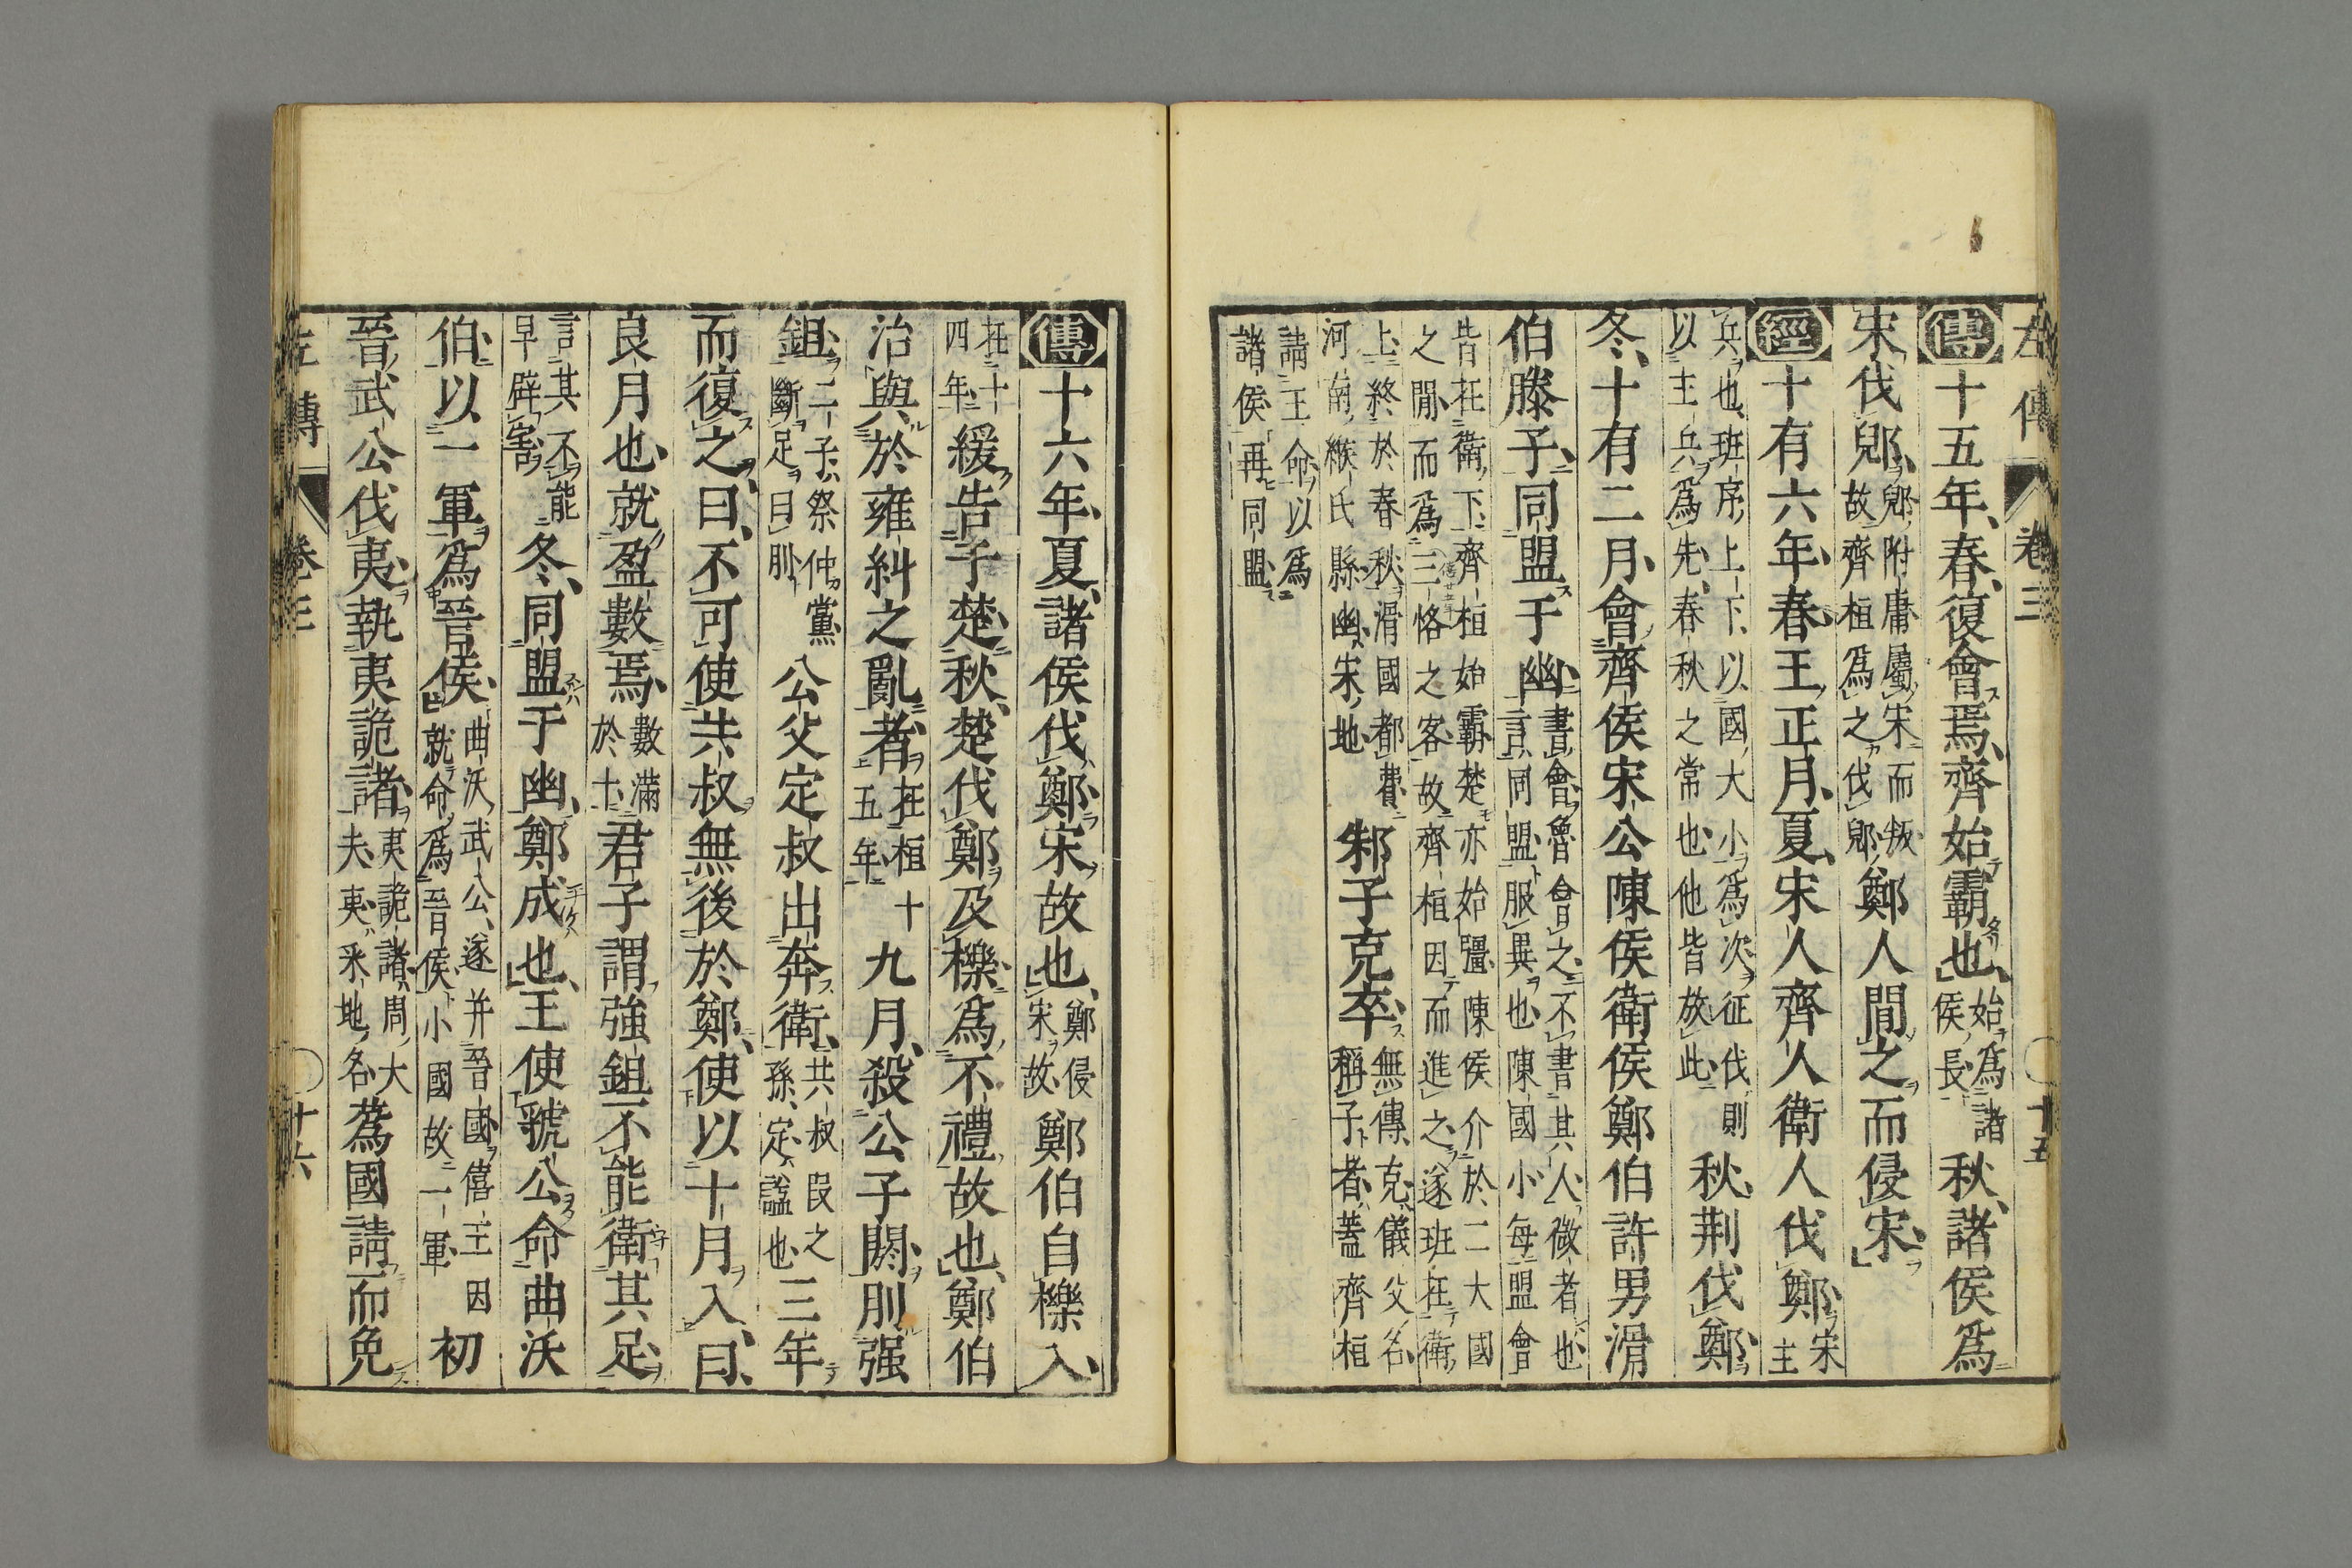 左傳 卷三 十五
傳十五年、春、復會焉、齊始霸也、始爲諸侯長秋、諸侯爲
宋伐郳、郳附庸屬宋而叛故齊桓爲之伐郳鄭人間之而侵宋、
經十有六年、春王正月、夏、宋人齊人衛人伐鄭、宋主
兵也班序上下以國大小爲次征伐則以主兵爲先春秋之常也他皆放此秋、荆伐鄭、
冬、十有二月、會齊侯宋公陳侯衛侯鄭伯許男滑
伯滕子、同盟于幽、書會魯會之不書其人微者也言同盟服異也陳國小每盟會
皆在衛下齊桓始霸楚亦始彊陳侯介於二大國之閒而爲三恪之客故齊桓因而進之遂班在衛
上終於春秋滑國都費河南緱氏縣幽宋地邾子克卒、無傳克儀父名稱子者蓋齊桓
請王命以爲諸侯再同盟
傳十六年、夏、諸侯伐鄭、宋故也、鄭侵宋故鄭伯自櫟入、
在十四年緩告于楚、秋、楚伐鄭、及櫟、爲不禮故也、鄭伯
治與於雍糾之亂者、在桓十五年九月、殺公子閼、刖强
鉏、二子祭仲黨斷足曰刖公父定叔出奔衛、共叔段之孫定謚也三年
而復之、曰、不可使共叔無後於鄭、使以十月入、曰、
良月也、就盈數焉、數滿於十君子謂強鉏不能衛其足、
言其不能早辟害冬、同盟于幽、鄭成也、王使虢公命曲沃
伯、以一軍爲晉侯、曲沃武公遂并晉國僖王因就命爲晉侯小國故一軍初
晉武公伐夷、執夷詭諸、夷詭諸周大夫夷采地名蒍國請而免
左傳 卷三 十六